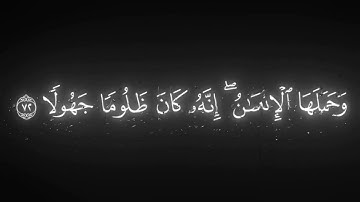 وَحَمَلَهَا ٱلْإِنسَٰنُ ۖ إِنَّهُۥ كَانَ ظَلُومًا جَهُولًا ٧٢